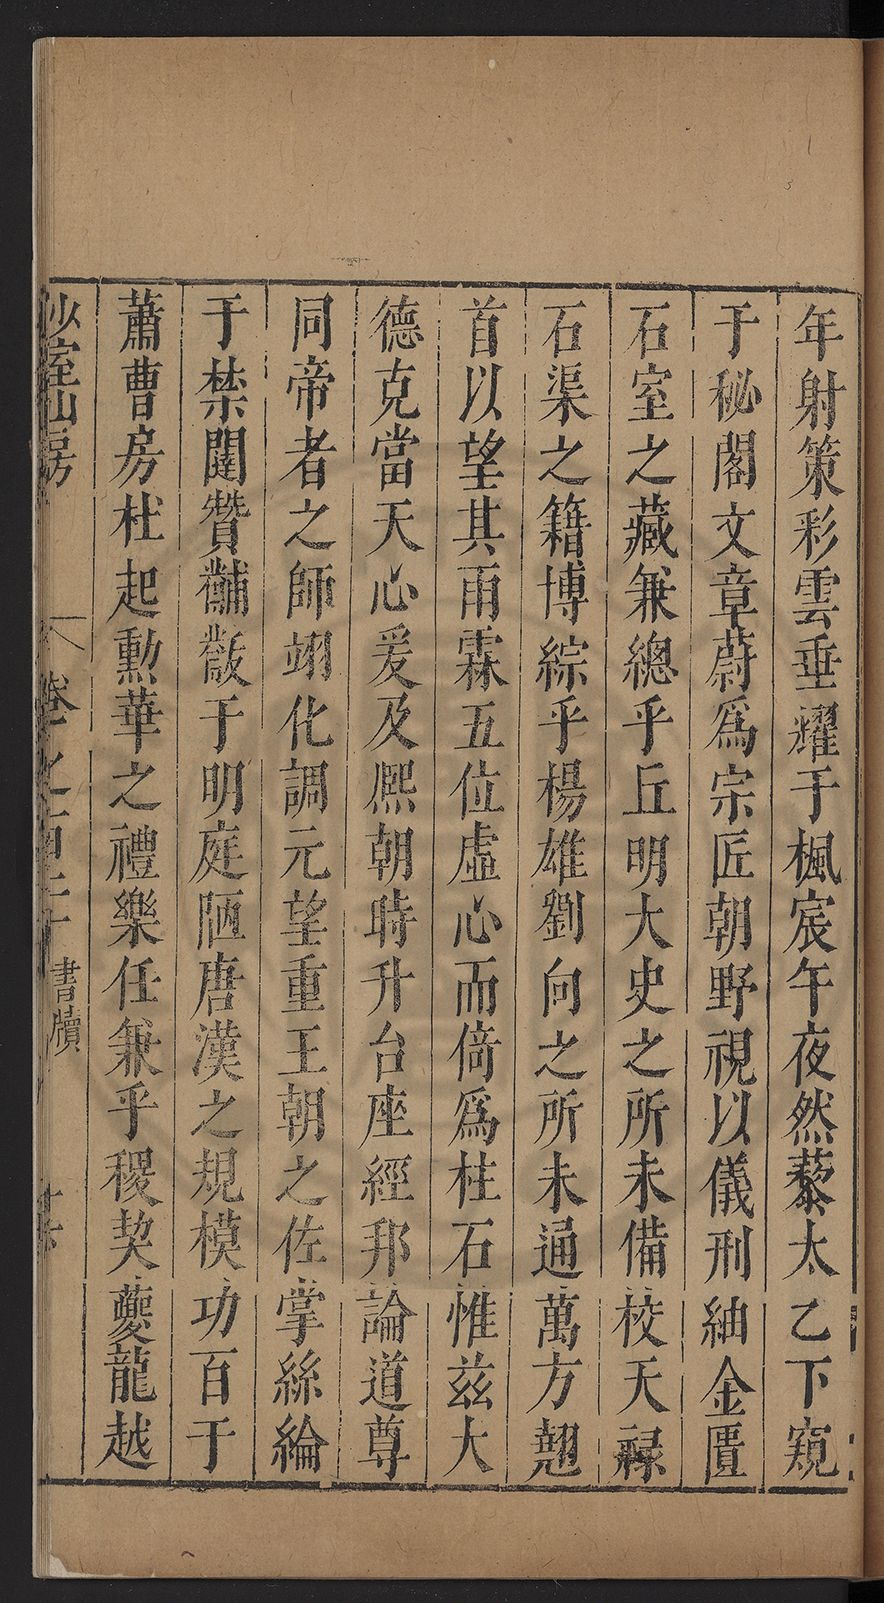 年射策彩雲垂耀于楓宸午夜然藜太乙下窺
于秘閣文章蔚爲宗匠朝野視以儀刑紬金匱
石室之藏兼總乎丘明大史之所未備校天祿
石渠之籍博綜乎楊雄劉向之所未通萬方翹
首以望其雨霖五位虛心而倚爲柱石惟茲大
德克當天心爰及熙朝時升台座經邦論道尊
同帝者之師翊化調元望重王朝之佐掌絲綸
于禁闥贊黼黻于明庭陋唐漢之規模功百于
蕭曹房杜起勲華之禮樂任兼乎稷契夔龍越
少室山房 卷之百二十 書牘